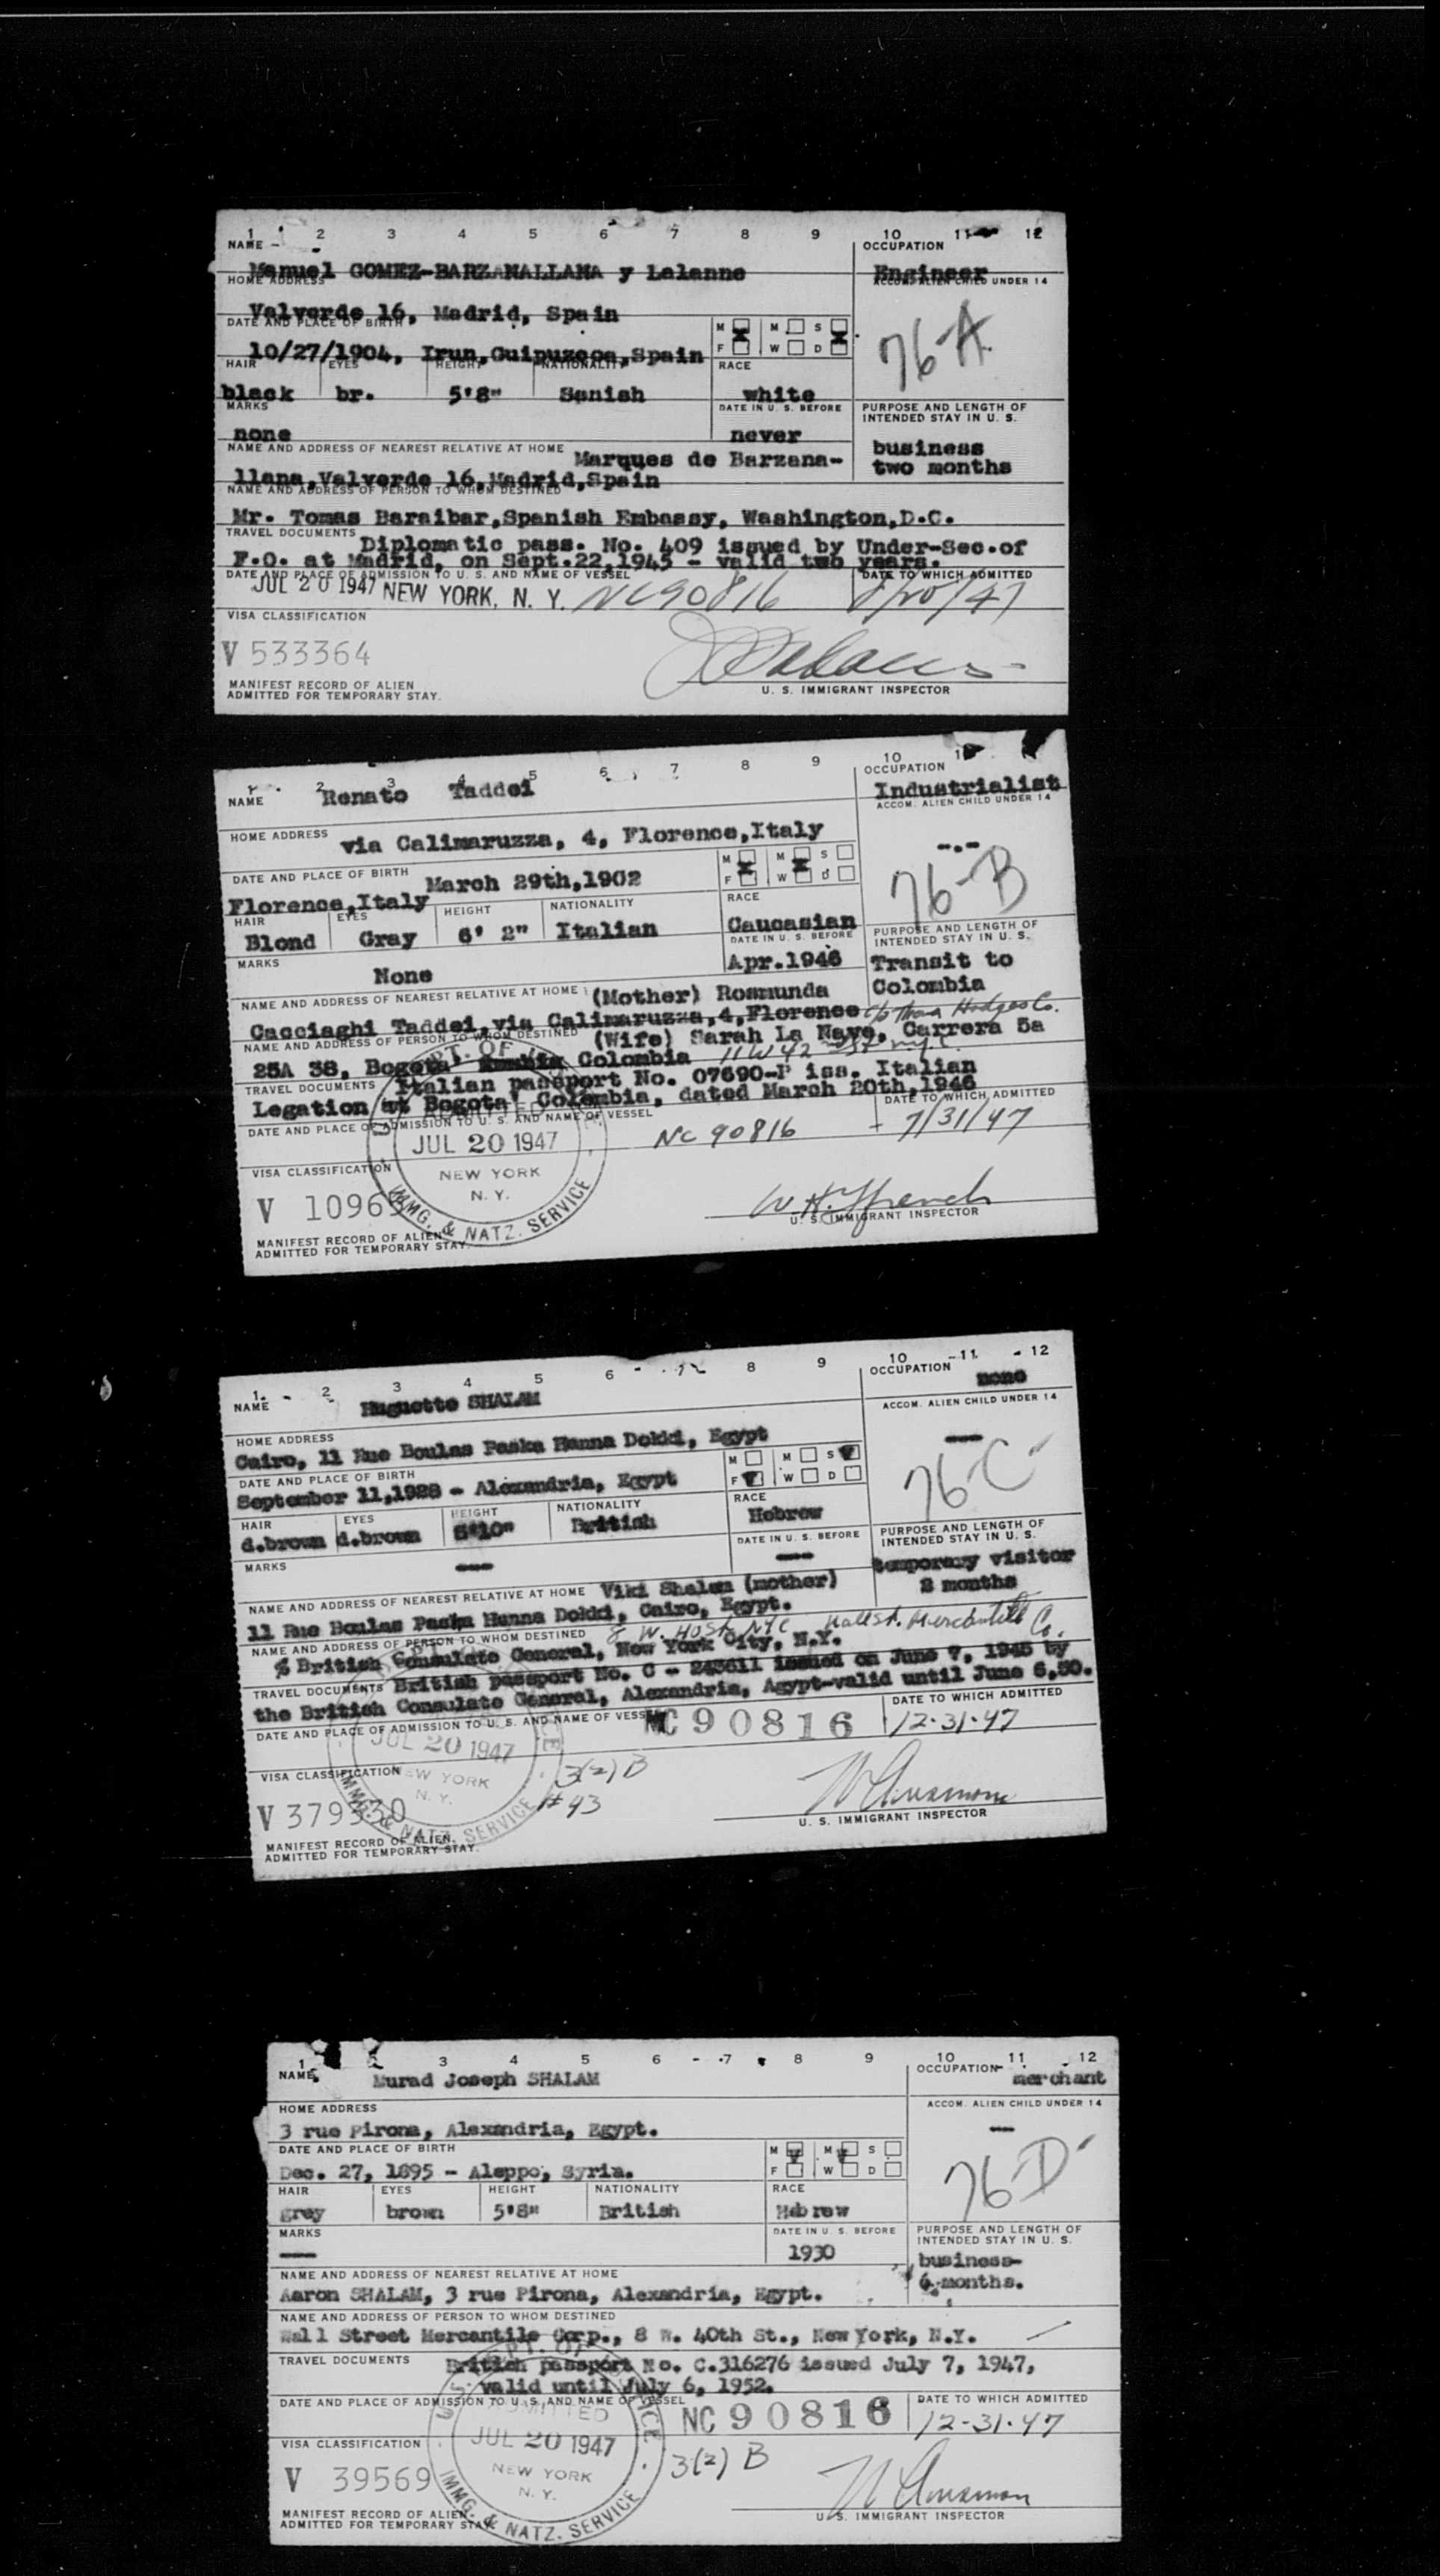 1 2 3 4 5 6 7 8 9 10 11 12
NAME OCCUPATION
Manuel GOMEZ-BARZANALLANA y Lalanne Engineer
HOME ADDRESS ACCOM. ALIEN CHILD UNDER 14
Valverde 16, Madrid, Spain
DATE AND PLACE OF BIRTH M M S
76-A
F W D
10/27/1904, Irun,Guipuzcoa,Spain
HAIR EYES HEIGHT NATIONALITY RACE
black br. 5'8" Sanish white
MARKS DATE IN U. S. BEFORE PURPOSE AND LENGTH OF INTENDED STAY IN U. S.
none never business
two months
NAME AND ADDRESS OF NEAREST RELATIVE AT HOME Marques de Barzana-
llana,Valverde 16,Madrid,Spain
NAME AND ADDRESS OF PERSON TO WHOM DESTINED
Mr. Tomas Baraibar,Spanish Embassy, Washington,D.C.
TRAVEL DOCUMENTS Diplomatic pass. No. 409 issued by Under-Sec.of
F.O. at Madrid, on Sept.22,1945 - valid two years.
DATE AND PLACE OF ADMISSION TO U. S. AND NAME OF VESSEL DATE TO WHICH ADMITTED
JUL 20 1947 NEW YORK, N. Y. NC90816 8/20/47
VISA CLASSIFICATION
V 533364
MANIFEST RECORD OF ALIEN
ADMITTED FOR TEMPORARY STAY.
U. S. IMMIGRANT INSPECTOR
2 3 4 5 6 7 8 9 10
NAME Renato Taddei OCCUPATION
Industrialist
ACCOM. ALIEN CHILD UNDER 14
HOME ADDRESS via Calimaruzza, 4, Florence,Italy
-.-
DATE AND PLACE OF BIRTH March 29th,1902 M M S
F W D
76-B
Florence,Italy
HAIR EYES HEIGHT NATIONALITY RACE
Blond Gray 6' 2" Italian Caucasian
MARKS DATE IN U. S. BEFORE PURPOSE AND LENGTH OF INTENDED STAY IN U. S.
None Apr.1946 Transit to
Colombia
NAME AND ADDRESS OF NEAREST RELATIVE AT HOME (Mother) Rosmunda
Cacciaghi Taddei,via Calimaruzza,4,Florence c/o Hodges Co.
NAME AND ADDRESS OF PERSON TO WHOM DESTINED (Wife) Sarah La Naye, Carrera 5a
25A 38, Bogota Colombia 11 W 42
TRAVEL DOCUMENTS Italian passport No. 07690-P iss. Italian
Legation at Bogota' Colombia, dated March 20th,1946
DATE AND PLACE OF ADMISSION TO U. S. AND NAME OF VESSEL DATE TO WHICH ADMITTED
JUL 20 1947 NC 90816 7/31/47
VISA CLASSIFICATION NEW YORK
N. Y.
V 1096
IMMG. & NATZ. SERVICE
W. H. French
U. S. IMMIGRANT INSPECTOR
MANIFEST RECORD OF ALIEN
ADMITTED FOR TEMPORARY STAY.
1 2 3 4 5 6 7 8 9 10 11 12
NAME Huguette SHALAM OCCUPATION none
ACCOM. ALIEN CHILD UNDER 14
HOME ADDRESS
Cairo, 11 Rue Boulas Paska Hanna Dokki, Egypt
DATE AND PLACE OF BIRTH M M S
F W D
76-C
September 11,1928 - Alexandria, Egypt
HAIR EYES HEIGHT NATIONALITY RACE
d.brown d.brown 5'10" British Hebrew
MARKS DATE IN U. S. BEFORE PURPOSE AND LENGTH OF INTENDED STAY IN U. S.
temporary visitor
2 months
NAME AND ADDRESS OF NEAREST RELATIVE AT HOME Viki Shalam (mother)
11 Rue Boulas Paska Hanna Dokki, Cairo, Egypt.
NAME AND ADDRESS OF PERSON TO WHOM DESTINED 8 W. 40 St. NYC Wall St. Mercantile Co.
% British Consulate General, New York City, N.Y.
TRAVEL DOCUMENTS British passport No. C - 243611 issued on June 7, 1945 by
the British Consulate General, Alexandria, Agypt-valid until June 6,50.
DATE AND PLACE OF ADMISSION TO U. S. AND NAME OF VESSEL DATE TO WHICH ADMITTED
JUL 20 1947 NC90816 12-31-47
VISA CLASSIFICATION NEW YORK 3(2) B
N. Y. #43
V 379330
IMMG. & NATZ. SERVICE
U. S. IMMIGRANT INSPECTOR
MANIFEST RECORD OF ALIEN.
ADMITTED FOR TEMPORARY STAY.
1 2 3 4 5 6 7 8 9 10 11 12
NAME Murad Joseph SHALAM OCCUPATION merchant
HOME ADDRESS ACCOM. ALIEN CHILD UNDER 14
3 rue Pirona, Alexandria, Egypt.
DATE AND PLACE OF BIRTH M M S
F W D
76D
Dec. 27, 1895 - Aleppo, Syria.
HAIR EYES HEIGHT NATIONALITY RACE
grey brown 5'8" British Hebrew
MARKS DATE IN U. S. BEFORE PURPOSE AND LENGTH OF INTENDED STAY IN U. S.
1930 business-
6 months.
NAME AND ADDRESS OF NEAREST RELATIVE AT HOME
Aaron SHALAM, 3 rue Pirona, Alexandria, Egypt.
NAME AND ADDRESS OF PERSON TO WHOM DESTINED
Wall Street Mercantile Corp., 8 W. 40th St., New York, N.Y.
TRAVEL DOCUMENTS British passport No. C.316276 issued July 7, 1947,
valid until July 6, 1952.
DATE AND PLACE OF ADMISSION TO U. S. AND NAME OF VESSEL DATE TO WHICH ADMITTED
ADMITTED NC90816 12-31-47
JUL 20 1947
VISA CLASSIFICATION NEW YORK 3(2) B
N. Y.
V 39569
IMMG. & NATZ. SERVICE
U. S. IMMIGRANT INSPECTOR
MANIFEST RECORD OF ALIEN
ADMITTED FOR TEMPORARY STAY